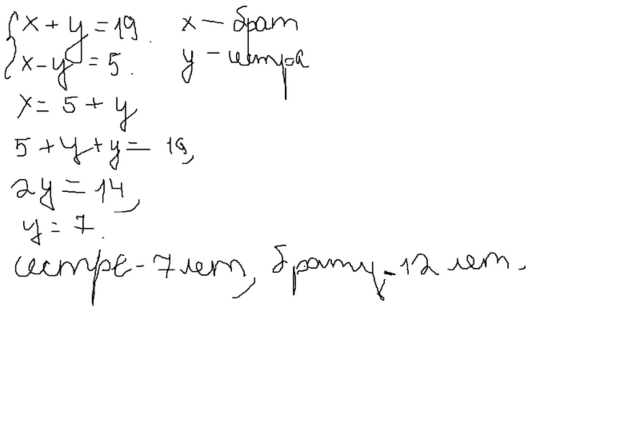 x + y = 19. x — брат
x - y = 5. y — сестра
x = 5 + y
5 + y + y = 19,
2y = 14,
y = 7.
сестре - 7 лет, брату - 12 лет.